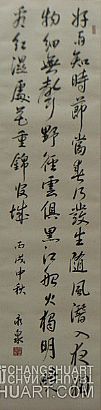 好雨知時節當春乃發生隨風潛入夜潤
物細無聲野徑雲俱黑江船火獨明曉
看紅濕處花重錦官城 丙戌中秋
CHANGSHUART